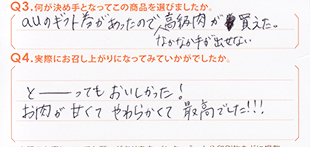 Q3.何が決め手となってこの商品を選びましたか。
auのギフト券があったので高級肉が買えた。
なかなか手が出せない
Q4.実際にお召し上がりになってみていかがでしたか。
と――ってもおいしかった!
お肉が甘くてやわらかくて最高でした!!!